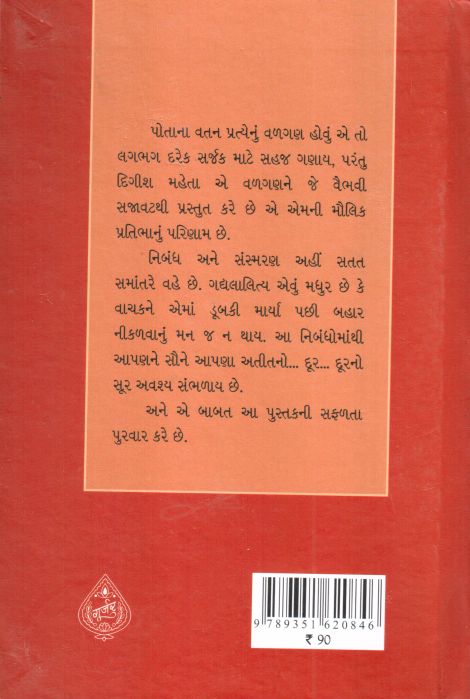 પોતાના વતન પ્રત્યેનું વળગણ હોવું એ તો
લગભગ દરેક સર્જક માટે સહજ ગણાય, પરંતુ
દિગીશ મહેતા એ વળગણને જે વૈભવી
સજાવટથી પ્રસ્તુત કરે છે એ એમની મૌલિક
પ્રતિભાનું પરિણામ છે.
નિબંધ અને સંસ્મરણ અહીં સતત
સમાંતરે વહે છે. ગદ્યલાલિત્ય એવું મધુર છે કે
વાચકને એમાં ડૂબકી માર્યા પછી બહાર
નીકળવાનું મન જ ન થાય. આ નિબંધોમાંથી
આપણને સૌને આપણા અતીતનો... દૂર... દૂરનો
સૂર અવશ્ય સંભળાય છે.
અને એ બાબત આ પુસ્તકની સફળતા
પુરવાર કરે છે.
ગૂર્જર
9 789351 620846
₹ 90